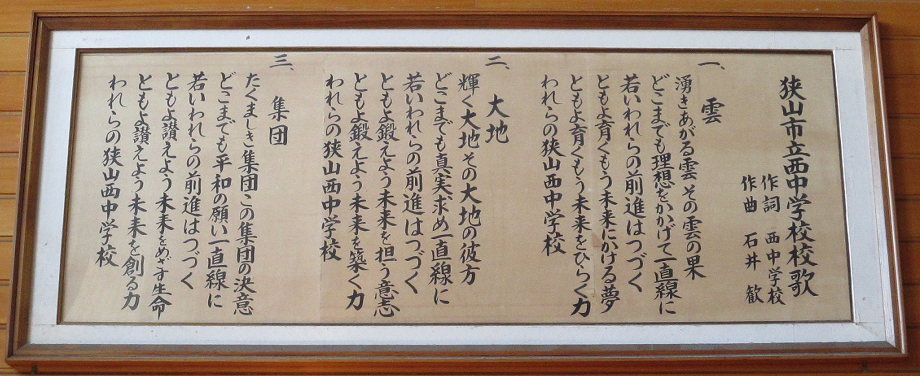 狭山市立西中学校校歌
作詞 西中学校
作曲 石井 歓
一、雲
湧きあがる雲その雲の果
どこまでも理想をかかげて一直線に
若いわれらの前進はつづく
ともよ育くもう未来にかける夢
ともよ育くもう未来をひらく力
われらの狭山西中学校
二、大地
輝く大地その大地の彼方
どこまでも真実求め一直線に
若いわれらの前進はつづく
ともよ鍛えよう未来を担う意志
ともよ鍛えよう未来を築く力
われらの狭山西中学校
三、集団
たくましき集団この集団の決意
どこまでも平和の願い一直線に
若いわれらの前進はつづく
ともよ讃えよう未来をめざす生命
ともよ讃えよう未来を創る力
われらの狭山西中学校